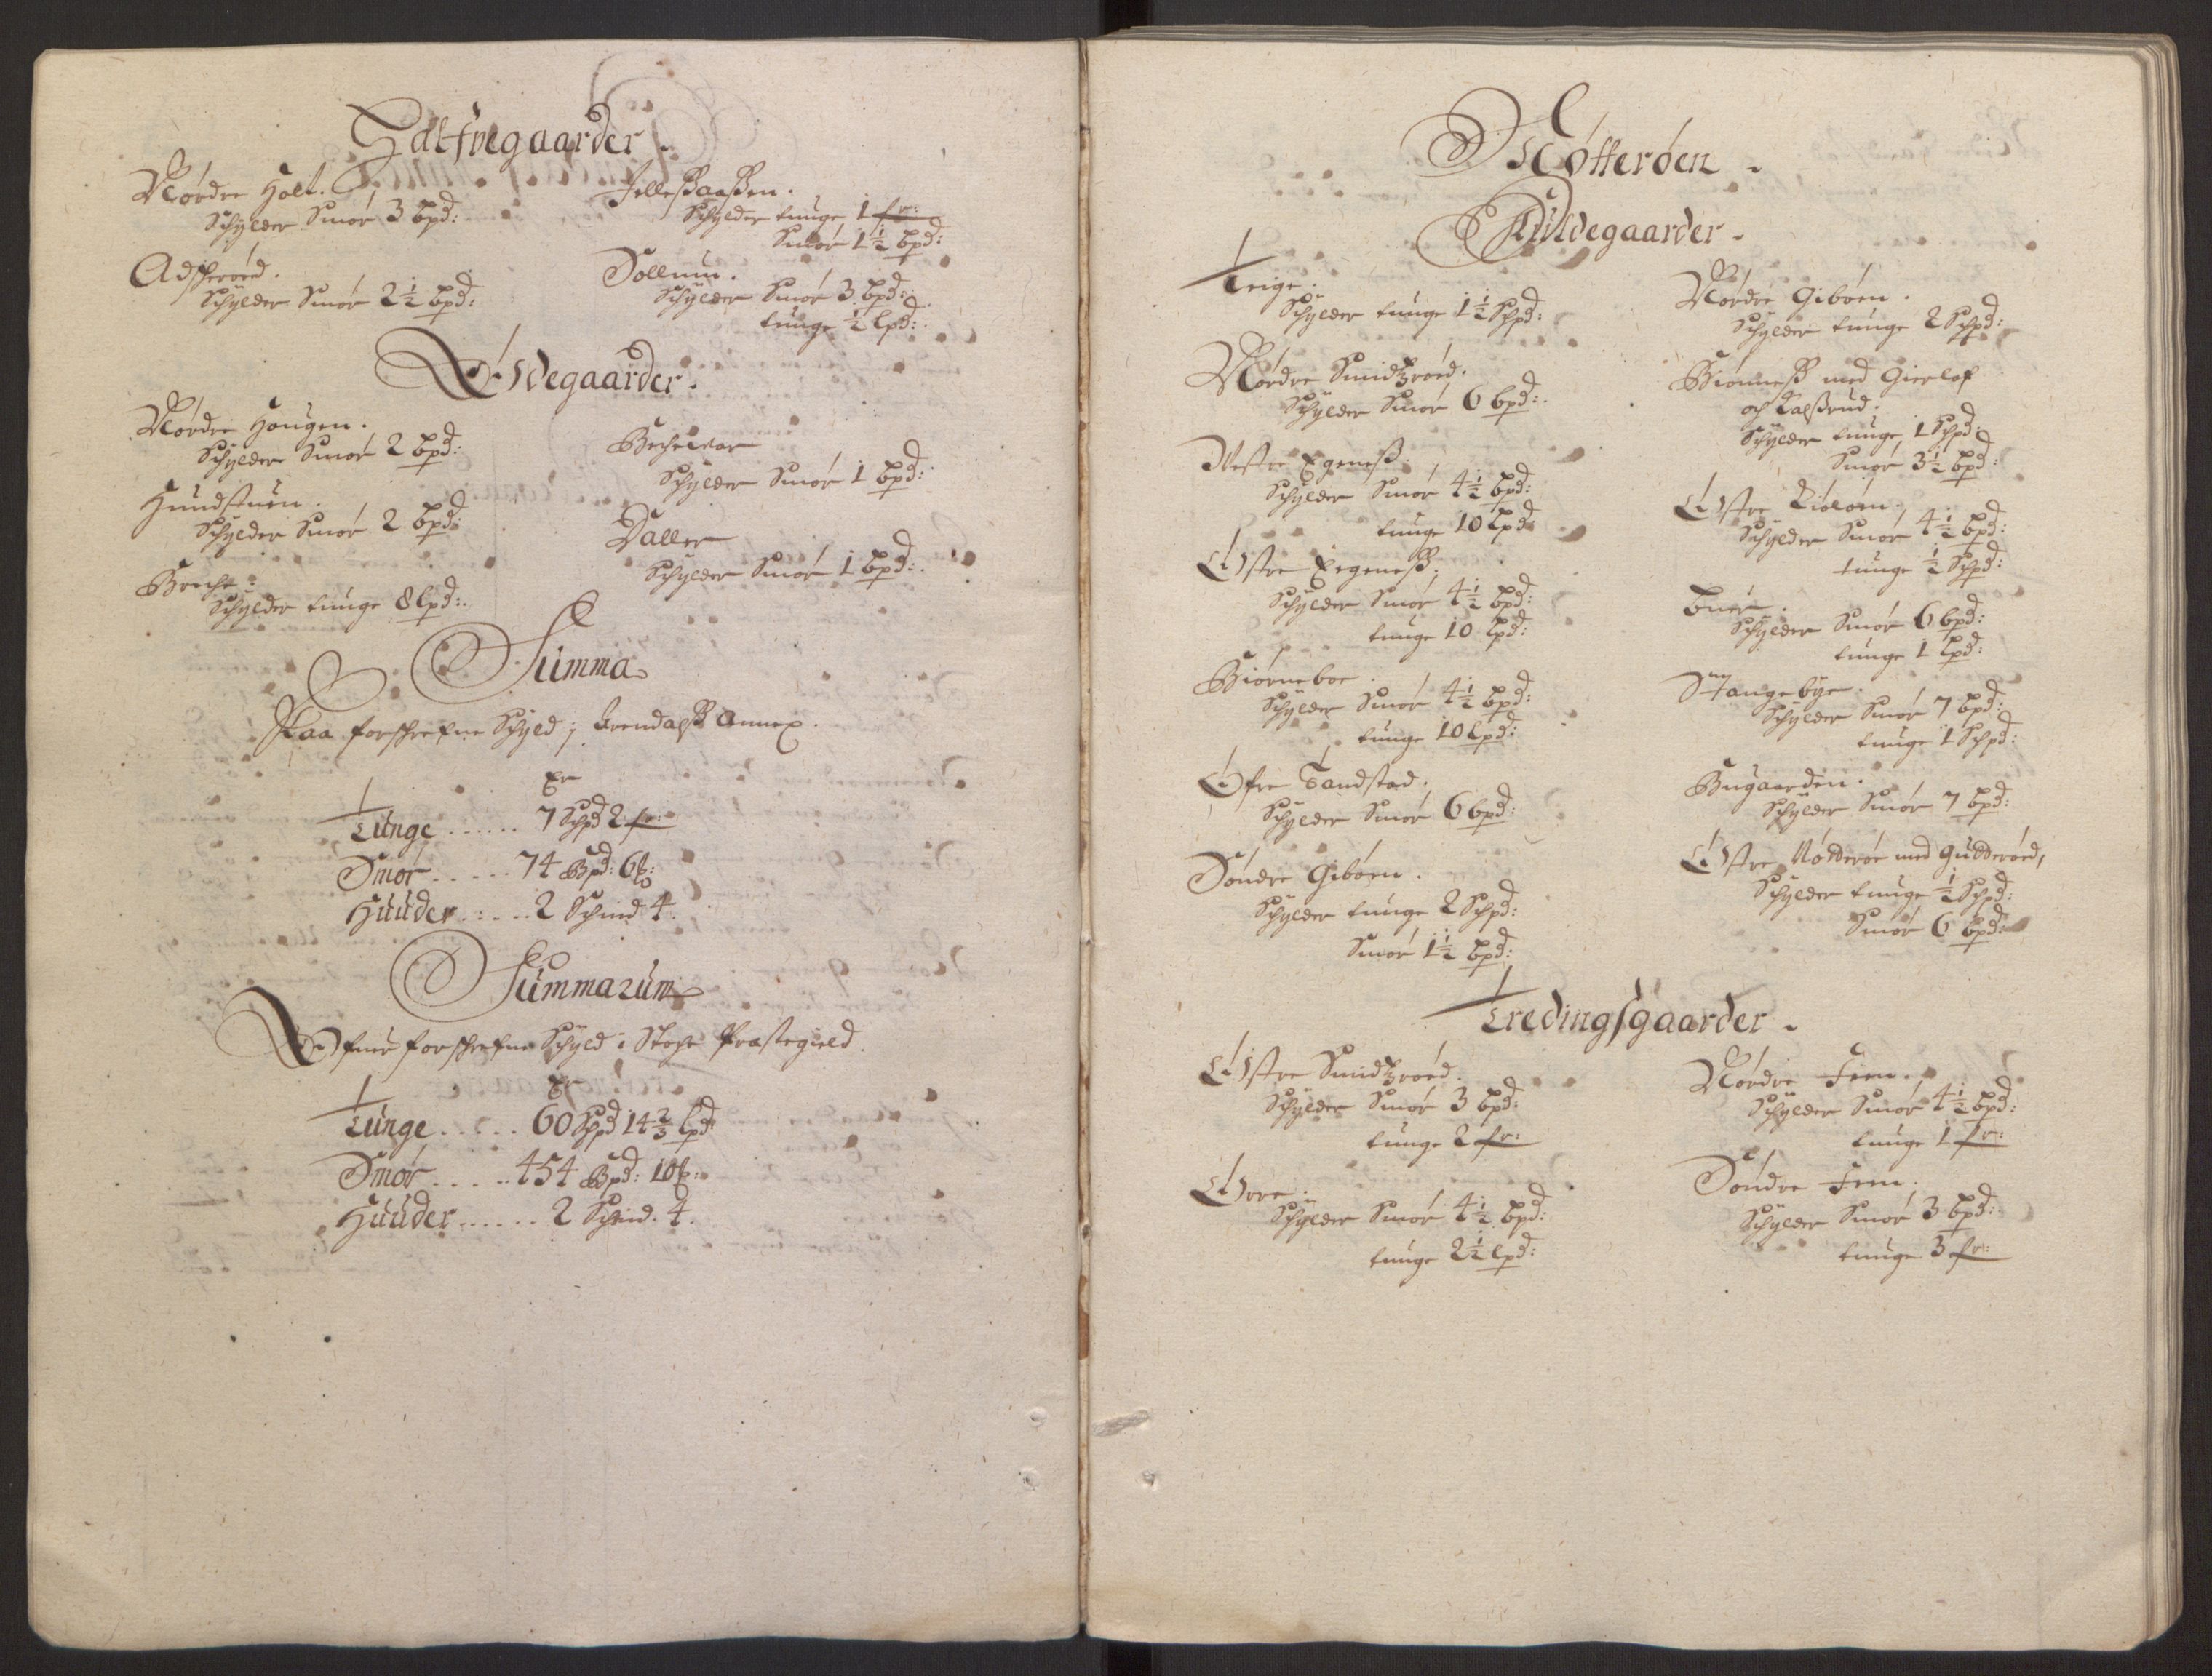 Halfvegaarder.
Nørdre Holt.
Schylder Smør 3 bpd:
Adserøed.
Schylder Smør 2½ bpd:
Jelleßaaßen.
Schylder tunge 1 fr:
Smør 1½ bpd:
Sollum.
Schylder Smør 3 bpd:
tunge ½ lpd:
Ødegaarder.
Nørdre Hougen.
Schylder Smør 2 bpd:
Hundstuen.
Schylder Smør 2 bpd:
Breche:
Schylder tunge 8 lpd:
Bechevar
Schylder Smør 1 bpd:
Daller
Schylder Smør 1 bpd:
Summa
Paa forschrefne Schyld j Arendalß Annex.
Er
Tunge ...... 7 Schpd 2 fr:
Smør ..... 74 Bpd: 6
Huuder ..... 2 Schind 4.
Summarum
Ofuer forschrefne Schyld i Stoche Præstegield.
Er
Tunge ..... 60 Schpd 14⅔ lpd:
Smør ..... 454 Bpd: 10
Huuder ...... 2 Schind. 4.
Nøtterøen.
Fuldegaarder.
Teige.
Schylder tunge 1½ Schpd:
Nørdre Smidzrøed.
Schylder Smør 6 bpd:
Westre Egeneß.
Schylder Smør 4½ bpd:
tunge 10 lpd:
Østre Eegeneß.
Schylder Smør 4½ bpd:
tunge 10 lpd:
Biørneboe.
Schylder Smør 4½ bpd:
tunge 10 lpd:
Øfre Sandstad.
Schylder Smør 6 bpd:
Søndre Gibøen.
Schylder tunge 2 Schpd:
Smør 1½ bpd:
Nørdre Gibøen.
Schylder tunge 2 Schpd:
Biønneß med Gierlof
och Kalßrud.
Schylder tunge, 1 Schpd.
Smør 3½ bpd:
Østre Kiøløen.
Schylder Smør 4½ bpd:
tunge ½ Schpd:
Buer.
Schylder Smør 6 bpd:
tunge 1 lpd:
Stangebye.
Schylder Smør 7 bpd:
tunge 1 Schpd:
Bugaarden.
Schylder Smør 7 bpd:
Østre Nøtterøe med Gudderøed,
Schylder tunge ½ Schpd:
Smør 6 bpd:
Tredingsgaarder.
Østre Smidzrøed.
Schylder Smør 3 bpd:
tunge 2 fr:
Øree:
Schylder Smør 4½ bpd:
tunge 2½ lpd:
Nørdre Feen.
Schylder Smør 4½ bpd:
tunge 1 fr:
Søndre Feen.
Schylder Smør 3 bpd:
tunge 3 fr: